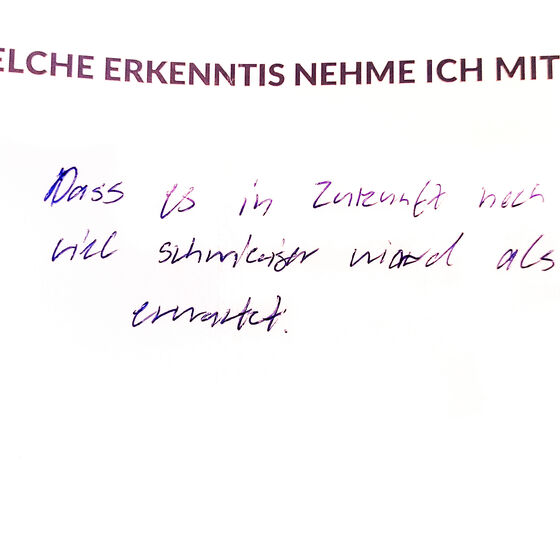 ELCHE ERKENNTIS NEHME ICH MIT
Dass es in Zukunft noch
viel schwieriger wird als
erwartet.